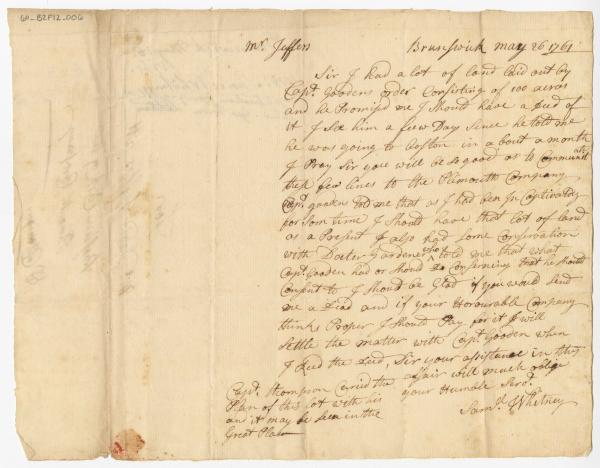 60-B2F12-006
Mr. Jeffers Brunswick may 26 1761
Sir I had a lot of land laid out by
Capt. Goodens order Consisting of 100 acres
and he Promised me I Should have a Deed of
it I See him a few Days Since he told me
he was going to Boston in a bout a month
I Pray Sir you will be so good as to Communicate
these few lines to the Plimouth Company
Capt. told me that as I had ben In Captivaty
for Som time I Should have that lot of land
as a Present I also had some Consersation
with Docter Gardener who told me that what
Capt. Gooden had or should Do Conserning that he Should
Consent to I Should be Glad if you would Send
me a Dead and if your Honourable Company
thinks Proper I Should Pay for it I will
Settle the matter with Capt. Gooden when
I the Deed, Sir your assistance in this
affair will much oblige
your Humble Serv.
Saml. Whitney
Capt. Thompson Caried the
Plan of this lot with his
and it may be Seen in the
Great Plan